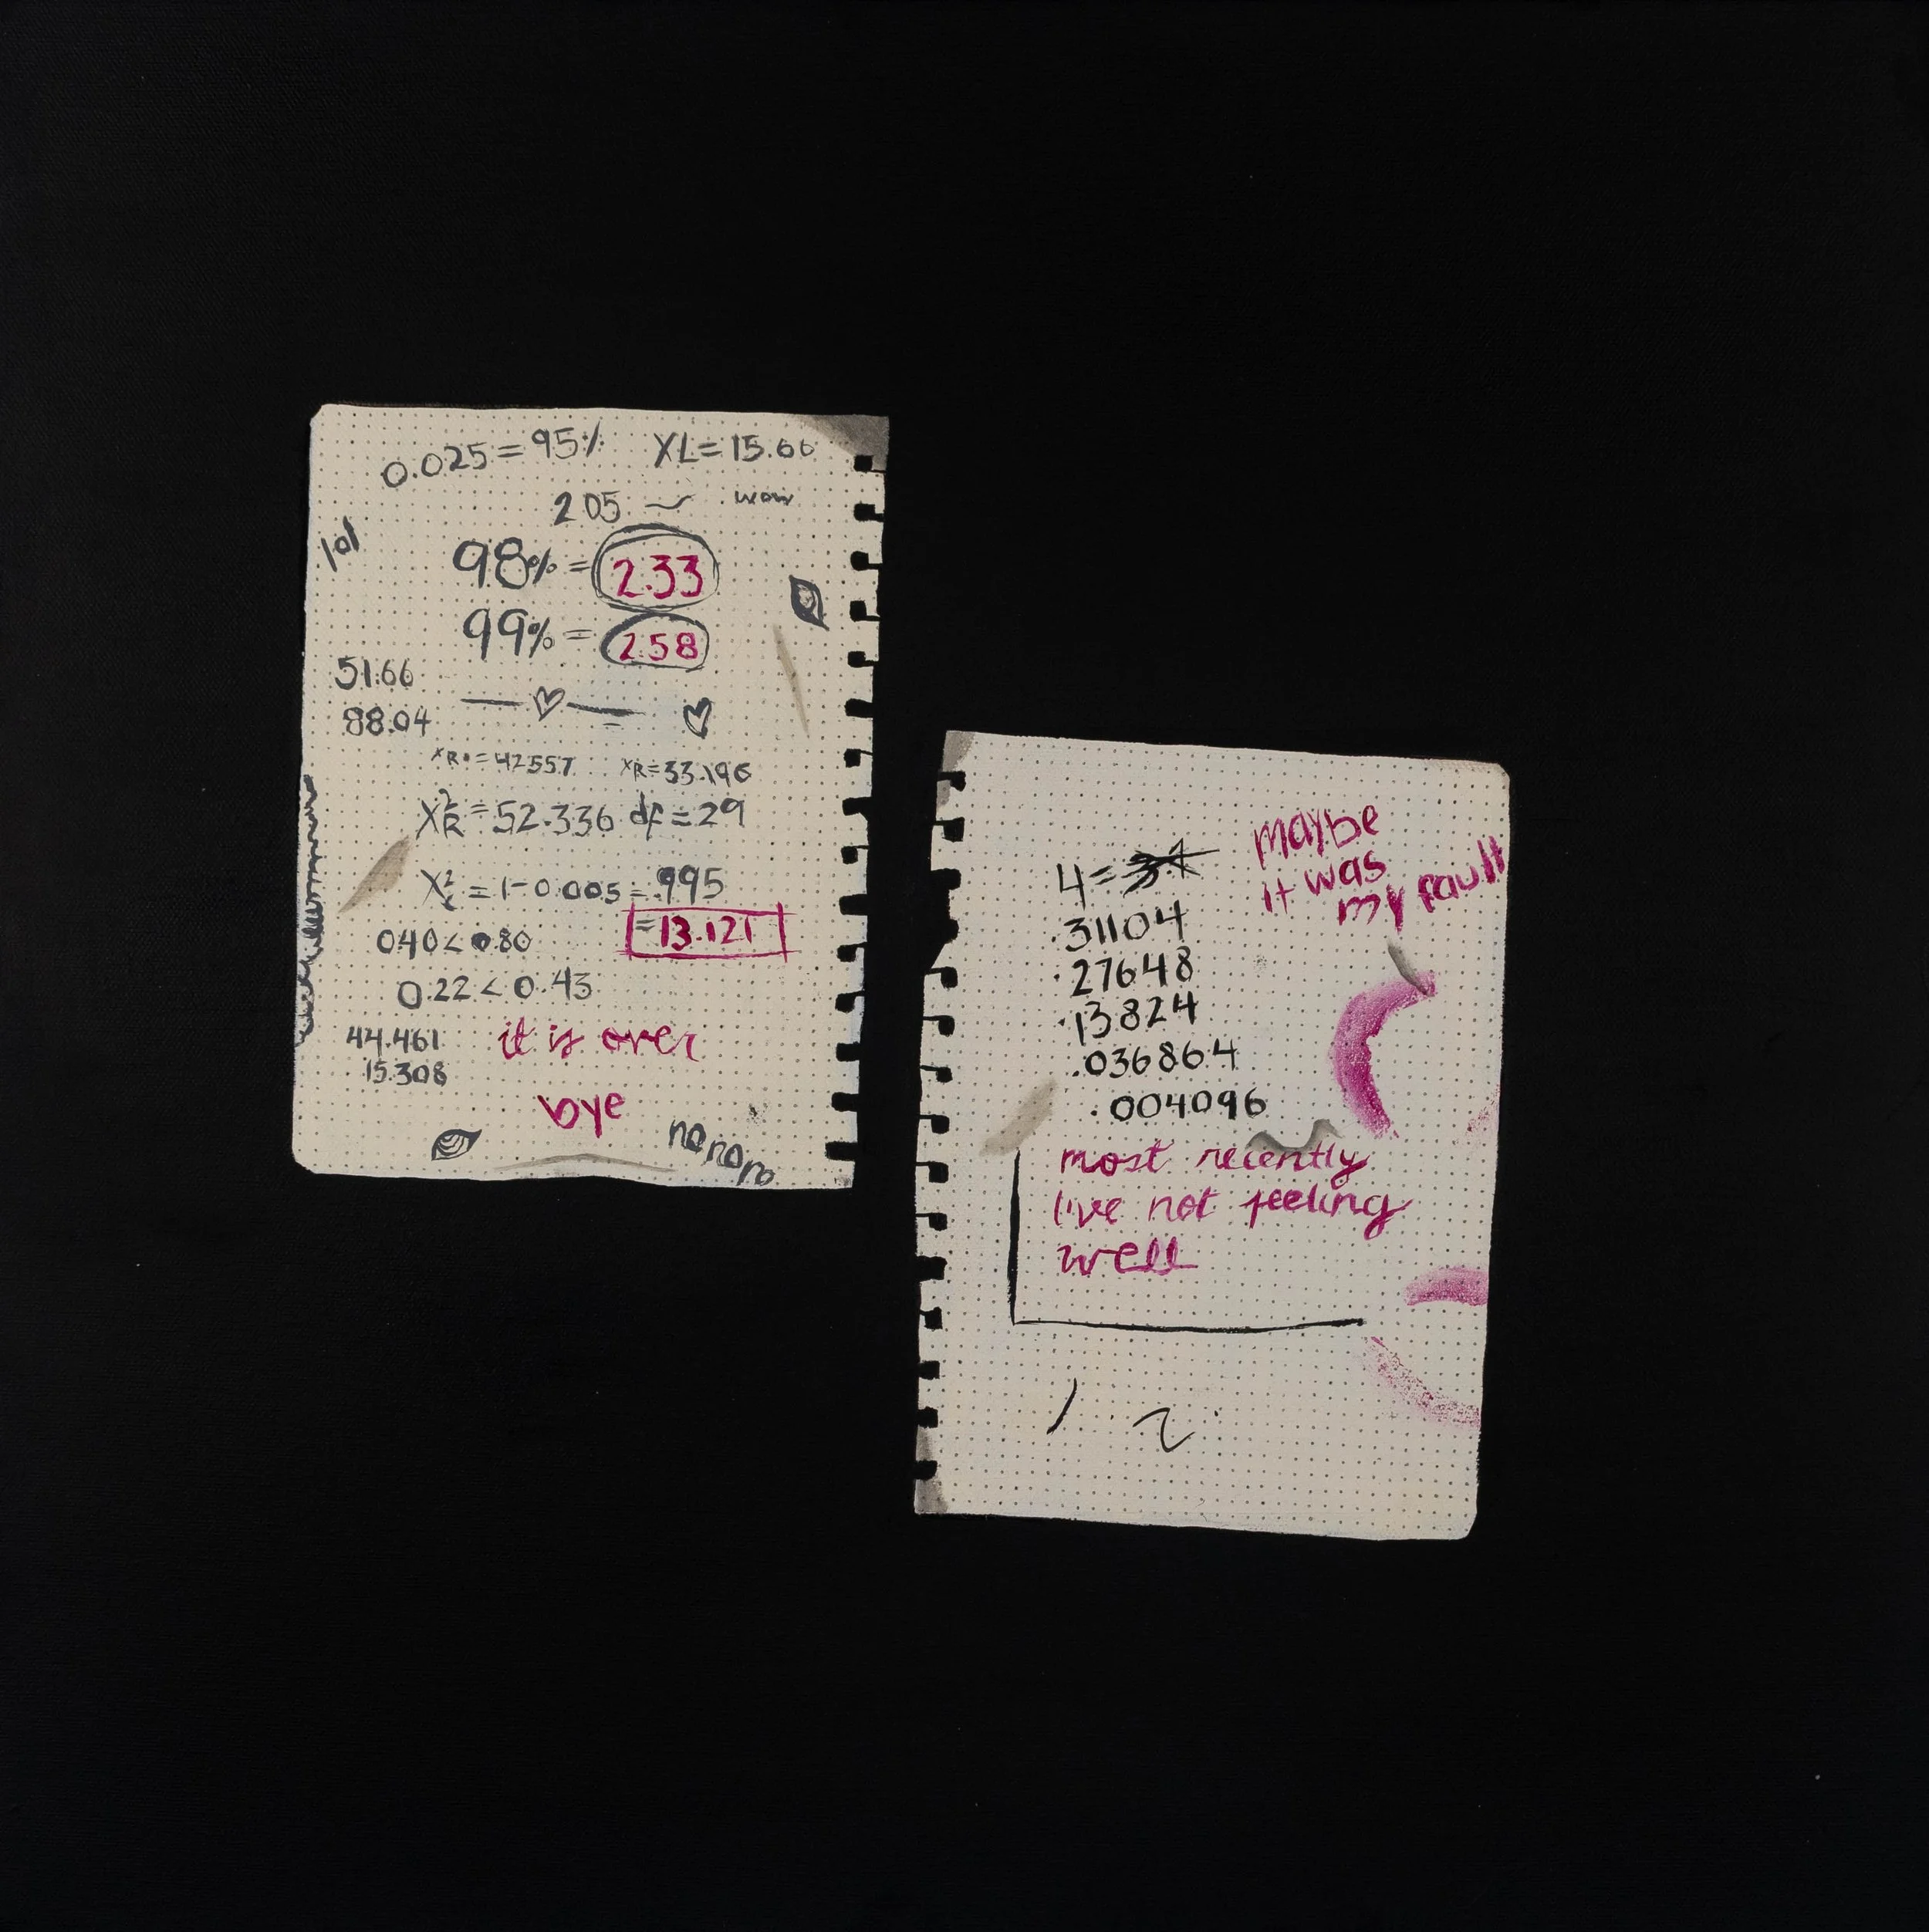 0.025 = 95% XL = 15.66
2 05 ~ wow
lol
98% = 2.33
99% = 2.58
51.66
88.04
XR = 42557 XR = 33.196
X²R = 52.336 df = 29
X²L = 1 - 0.005 = .995
= 13.121
040 < 0.80
0.22 < 0.43
44.461 it is over
15.308
bye
nononо
maybe
it was
my fault
4 =
.31104
.27648
.13824
.036864
.004096
most recently
I've not feeling
well